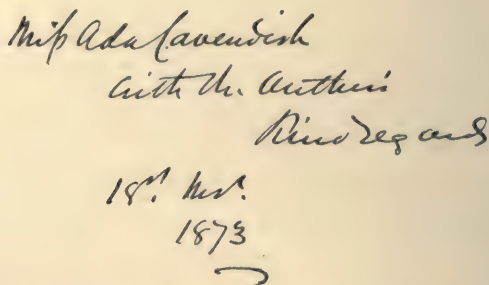 Miss Ada Cavendish
with the Author's
Kind regards
18th Novr.
1873